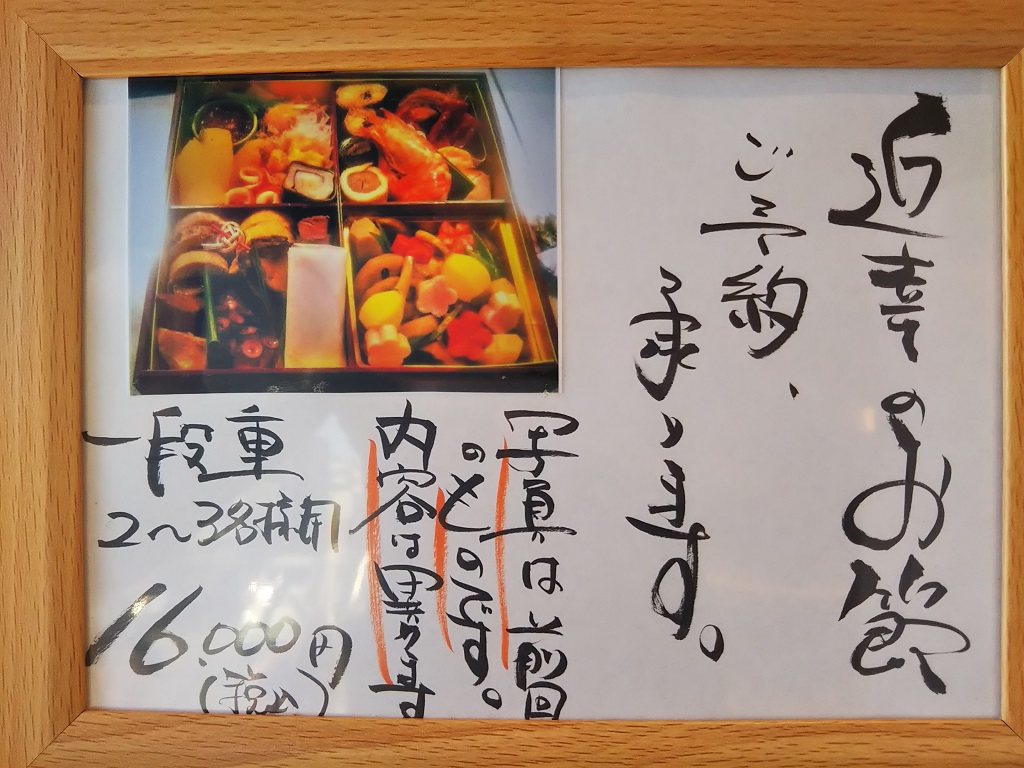 近喜のお節
ご予約、
承ります。
写真は前回
のものです。
内容は異なります
一段重
2〜3名様用
16,000円
(税込)